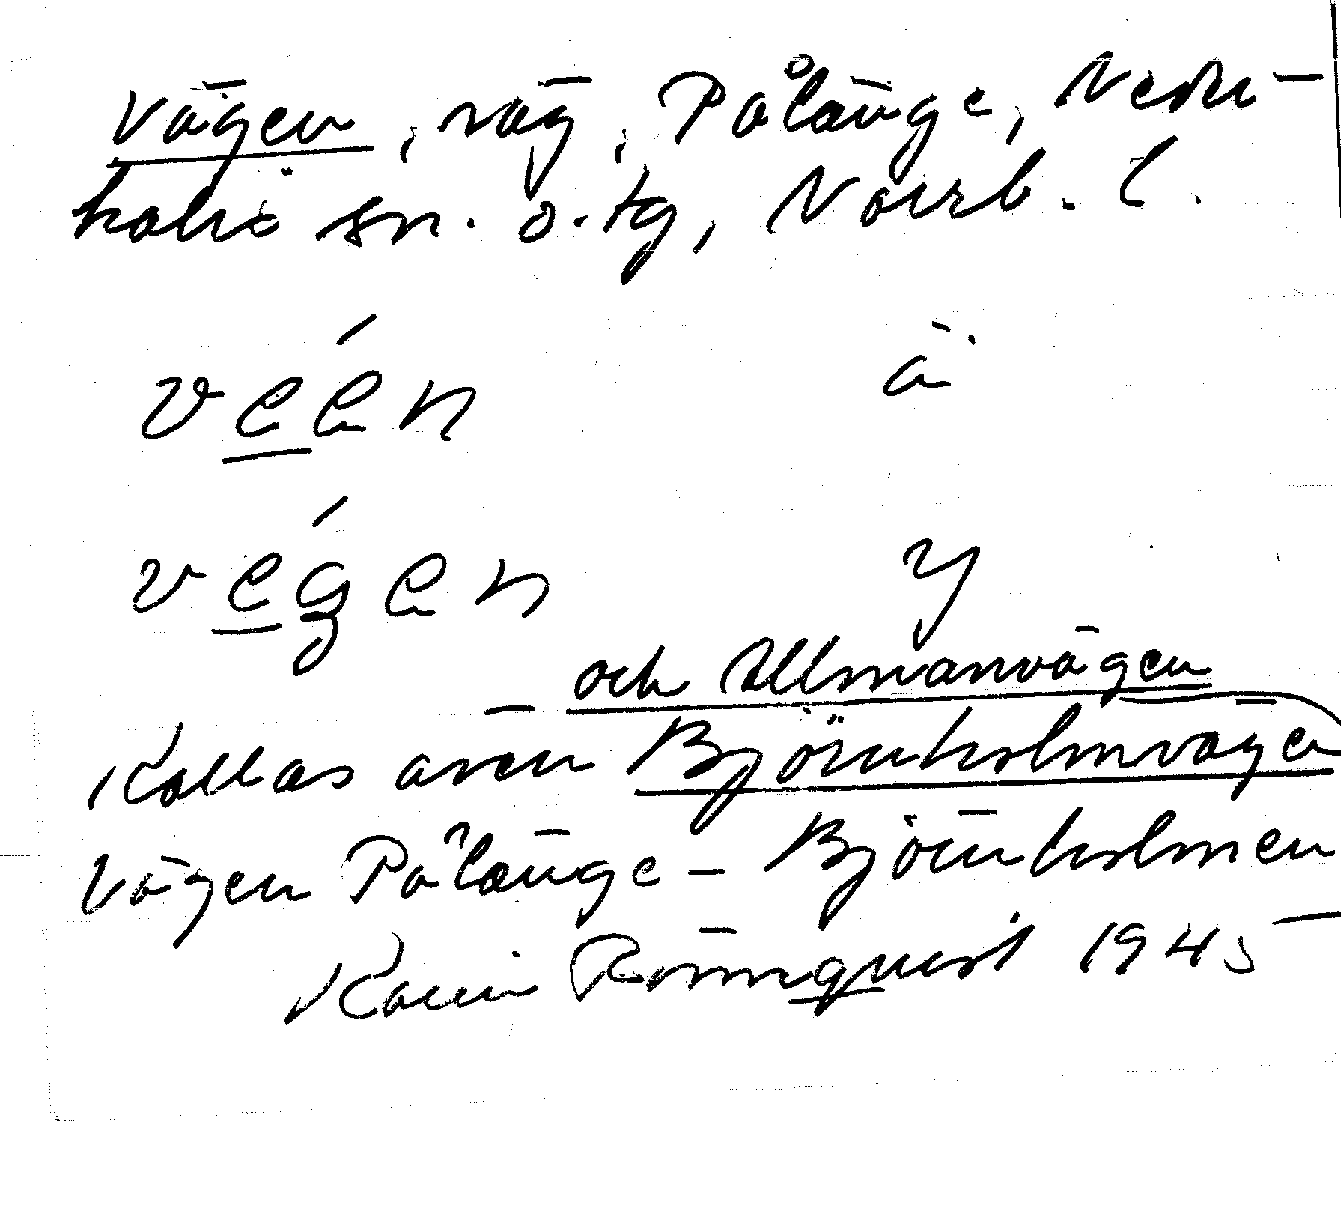 Vägen, väg, Pålänge, Neder-
kalix sn. o. tg, Norrb. l.
veén ä
végen y
och Allmanvägen
Kallas även Björnholmvägen
Vägen Pålänge - Björnholmen
Karin Rönnquist 1945